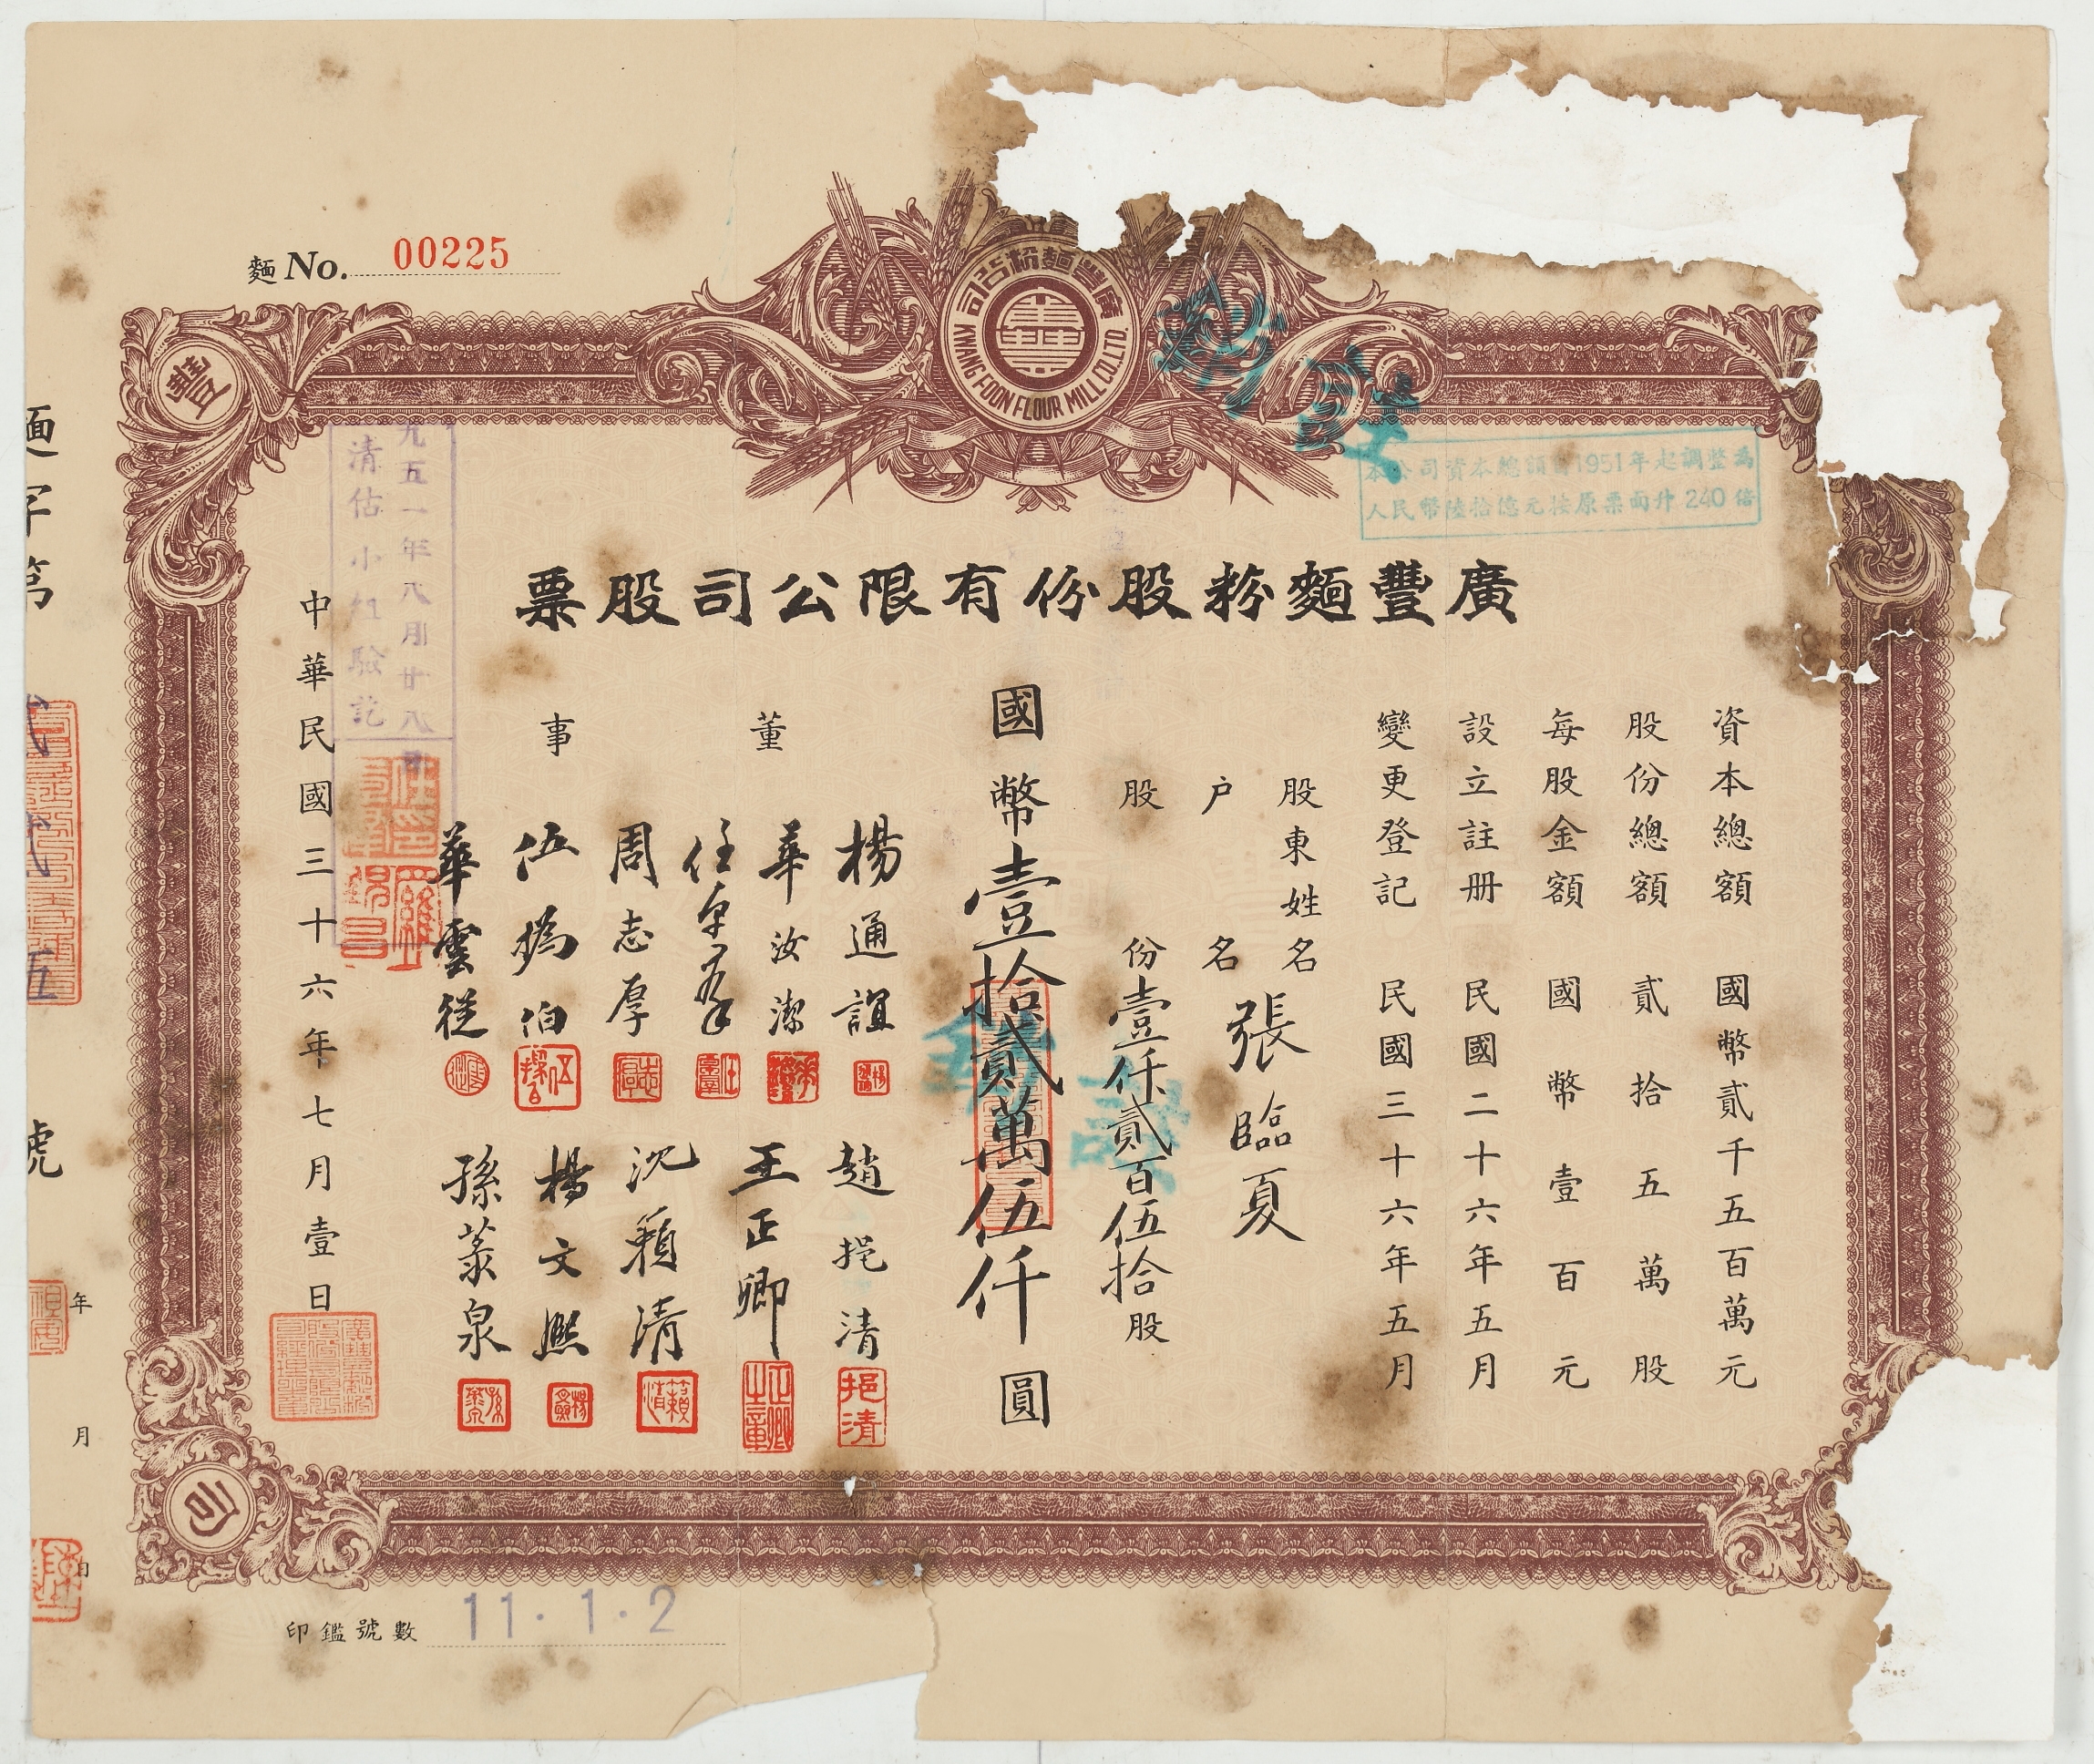 麵 No. 00225
廣豐麵粉公司
KWANG FOON FLOUR MILL CO.LTD.
豐
本公司資本總額自1951年起調整為
人民幣陸拾億元按原票面升240倍
廣豐麵粉股份有限公司股票
資本總額 國幣貳千五百萬元
股份總額 貳拾五萬股
每股金額 國幣壹百元
設立註册 民國二十六年五月
變更登記 民國三十六年五月
股東姓名
户名 張臨夏
股份壹仟貳百伍拾股
國幣壹拾貳萬伍仟圓
董事
楊通誼
華汝潔
任卓羣
周志厚
伍撝伯
華雲從
趙挹清
挹清
王正卿
正卿之章
沈籟清
籟清
楊文熙
孫蒸泉
九五一年八月廿八日
清估小组驗訖
中華民國三十六年七月壹日
麵字第貳貳五號
年 月 日
司
印鑑號數 11.1.2